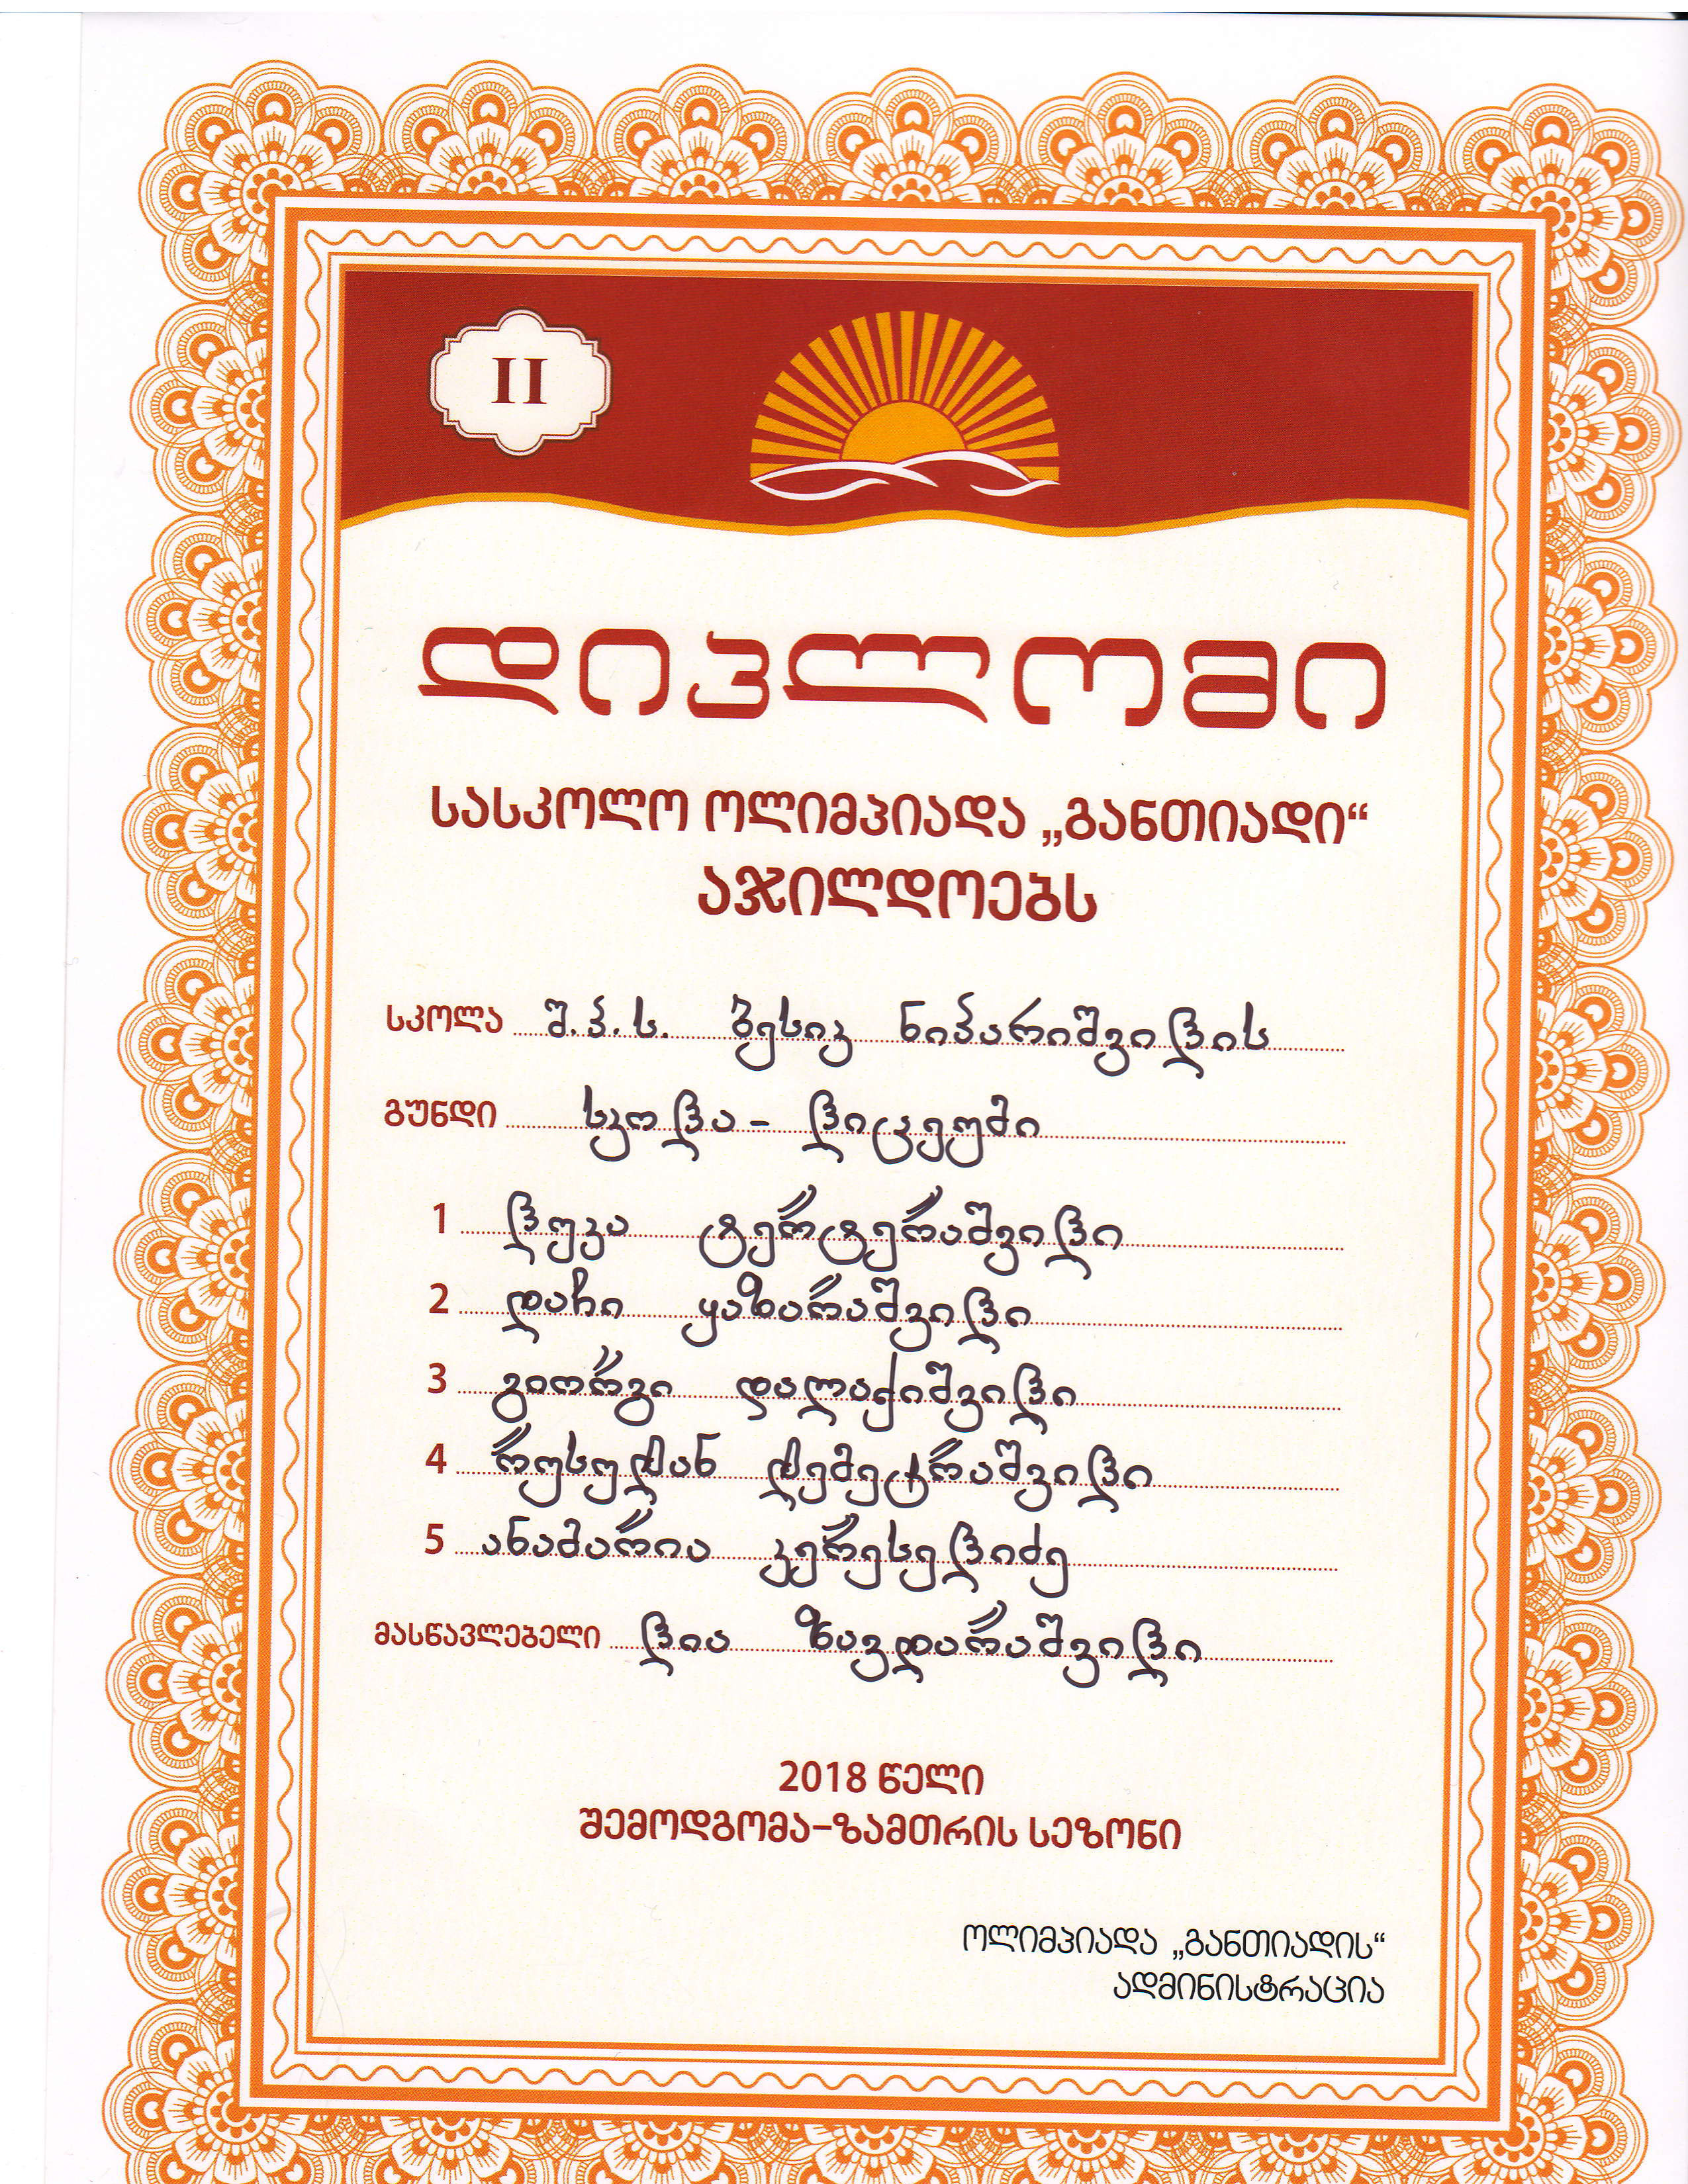 II
დიპლომი
სასკოლო ოლიმპიადა „განთიადი“
აჯილდოებს
სკოლა შ.პ.ს. ბესიკ ნიპარიშვილის
გუნდი სკოლა - ლიცეუმი
1 ლუკა ტერტერაშვილი
2 დაჩი ყაზარაშვილი
3 გიორგი დალაქიშვილი
4 რუსუდან დემეტრაშვილი
5 ანამარია კერესელიძე
მასწავლებელი ლია ზავდარაშვილი
2018 წელი
შემოდგომა-ზამთრის სეზონი
ოლიმპიადა „განთიადის“
ადმინისტრაცია